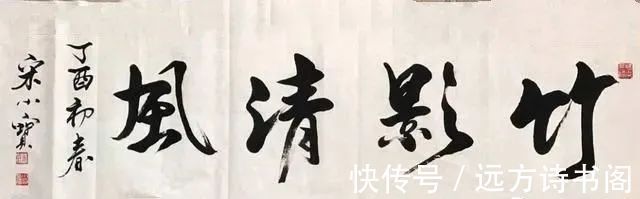 竹影清風
丁酉初春
宋小寶
快传号 / 远方诗书阁